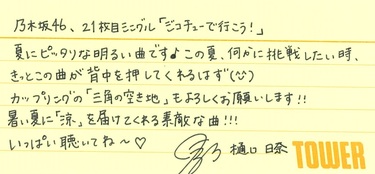 乃木坂46、21枚目シングル「ジコチューで行こう!」
夏にピッタリな明るい曲です♪この夏、何かに挑戦したい時、
きっとこの曲が背中を押してくれるはず(¨)
カップリングの「三角の空き地」もよろしくお願いします!!
暑い夏に「涼」を届けてくれる素敵な曲!!!
いっぱい聴いてね〜♡
樋口 日奈 TOWER